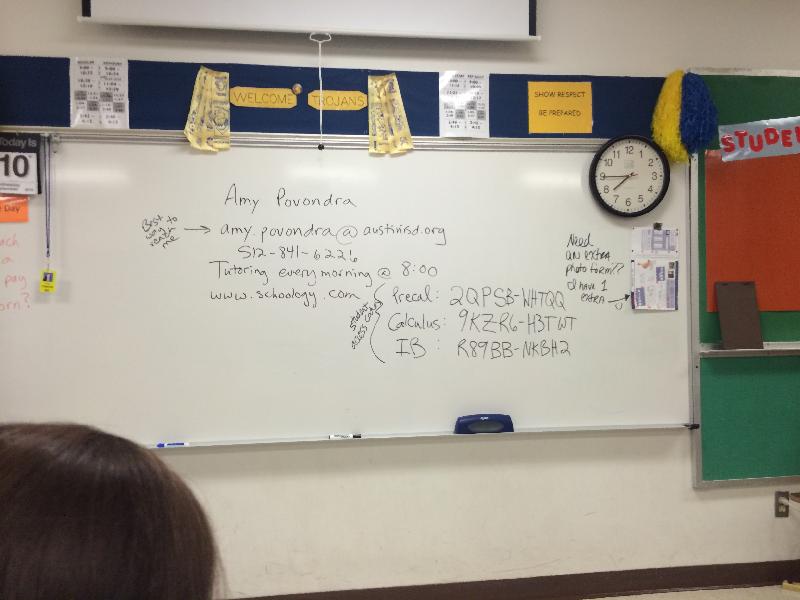 WELCOME TROJANS
SHOW RESPECT
BE PREPARED
Today Is
10
STUDE
Amy Povondra
Best way to reach me
amy.povondra@austinisd.org
512-841-6226
Tutoring every morning @ 8:00
www.schoology.com
student access codes
Precal: 2QPSB-WHTQQ
Calculus: 9KZR6-H3TWT
IB : R89BB-NKBH2
Need
an extra
photo form??
I have 1
extra
12
1
2
3
4
5
6
7
8
9
10
11
Day
a
pay